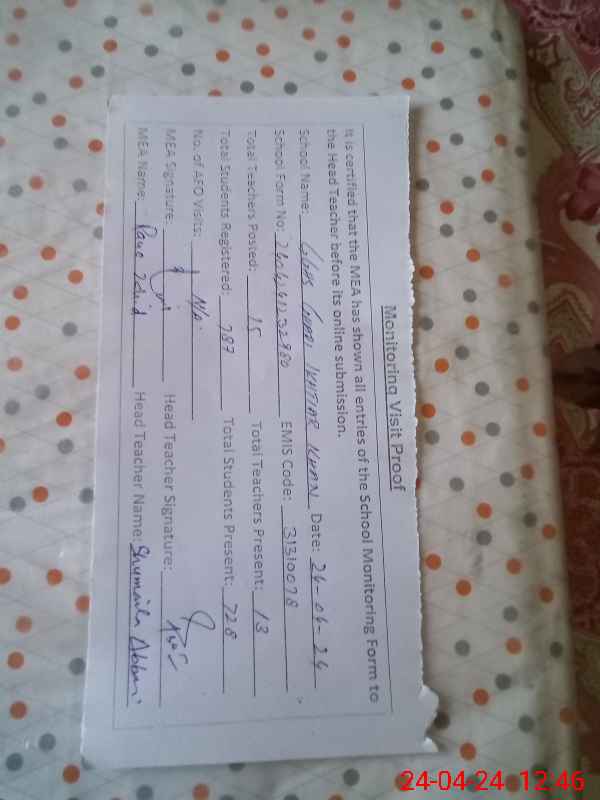 Monitoring Visit Proof
It is certified that the MEA has shown all entries of the School Monitoring Form to
the Head Teacher before its online submission.
School Name: GGHS IKHTIAR KHAN Date: 24-04-24
School Form No: EMIS Code: 31310078
Total Teachers Posted: 15 Total Teachers Present: 13
Total Students Registered: 787 Total Students Present: 728
No. of AFD Visits: N/A
MEA Signature: Head Teacher Signature:
MEA Name: Head Teacher Name: Shumaila
24-04-24 12:46